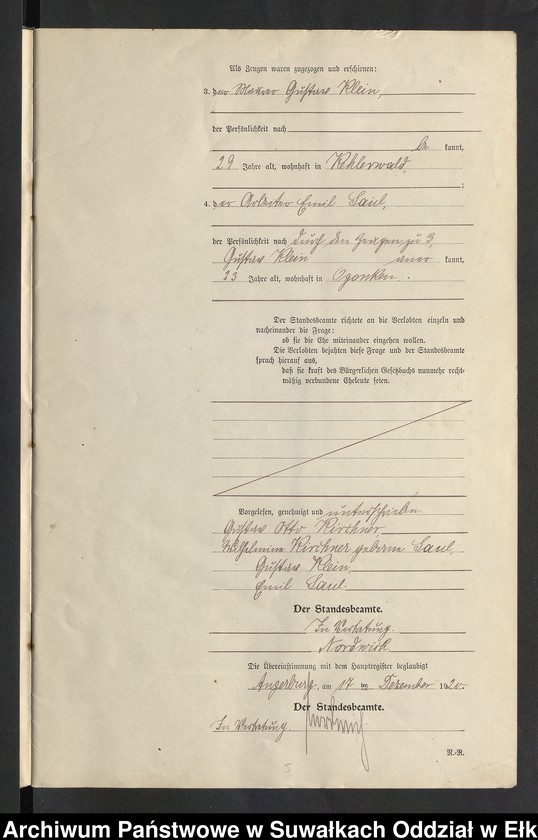 Als Zeugen waren zugezogen und erschienen:
3. der Maurer Gustav Klein,
der Persönlichkeit nach
be kannt,
29 Jahre alt, wohnhaft in Kehlerwald,
;
4. der Arbeiter Emil Saul,
der Persönlichkeit nach durch den Zeugen zu 3,
Gustav Klein aner kannt,
23 Jahre alt, wohnhaft in Ogonken.
Der Standesbeamte richtete an die Verlobten einzeln und
nacheinander die Frage:
ob sie die Ehe miteinander eingehen wollen.
Die Verlobten bejahten diese Frage und der Standesbeamte
sprach hierauf aus,
daß sie kraft des Bürgerlichen Gesetzbuchs nunmehr recht-
mäßig verbundene Eheleute seien.
Vorgelesen, genehmigt und unterschrieben
Gustav Otto Kirchner
Wilhelmine Kirchner geborene Saul,
Gustav Klein,
Emil Saul.
Der Standesbeamte.
In Vertretung.
Nordwich
Die Übereinstimmung mit dem Hauptregister beglaubigt
Angerburg, am 17 ten Dezember 1920.
Der Standesbeamte.
In Vertretung.
R.-R.
5
Archiwum Państwowe w Suwałkach Oddział w Ełk